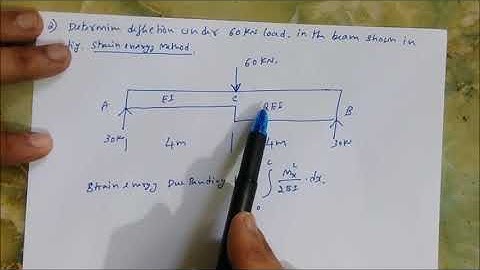 2) Determin diflection under 60 KN load. in the beam shown in
fig strain energy Method.
60 KN.
A EI C 2EI B
30KN 4m 4m 30KN
Strain energy Due Banding
L
∫ Mx² / 2EI . dx.
0